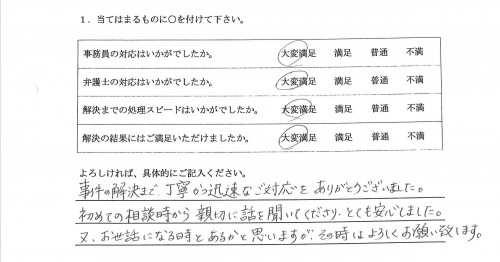 1．当てはまるものに〇を付けて下さい。
事務員の対応はいかがでしたか。 大変満足 満足 普通 不満
弁護士の対応はいかがでしたか。 大変満足 満足 普通 不満
解決までの処理スピードはいかがでしたか。 大変満足 満足 普通 不満
解決の結果にはご満足いただけましたか。 大変満足 満足 普通 不満
よろしければ、具体的にご記入ください。
事件の解決まで、丁寧かつ迅速なご対応をありがとうございました。
初めての相談時から親切に話を聞いてくださり、とても安心しました。
又、お世話になる時とあるかと思いますが、その時はよろしくお願い致します。